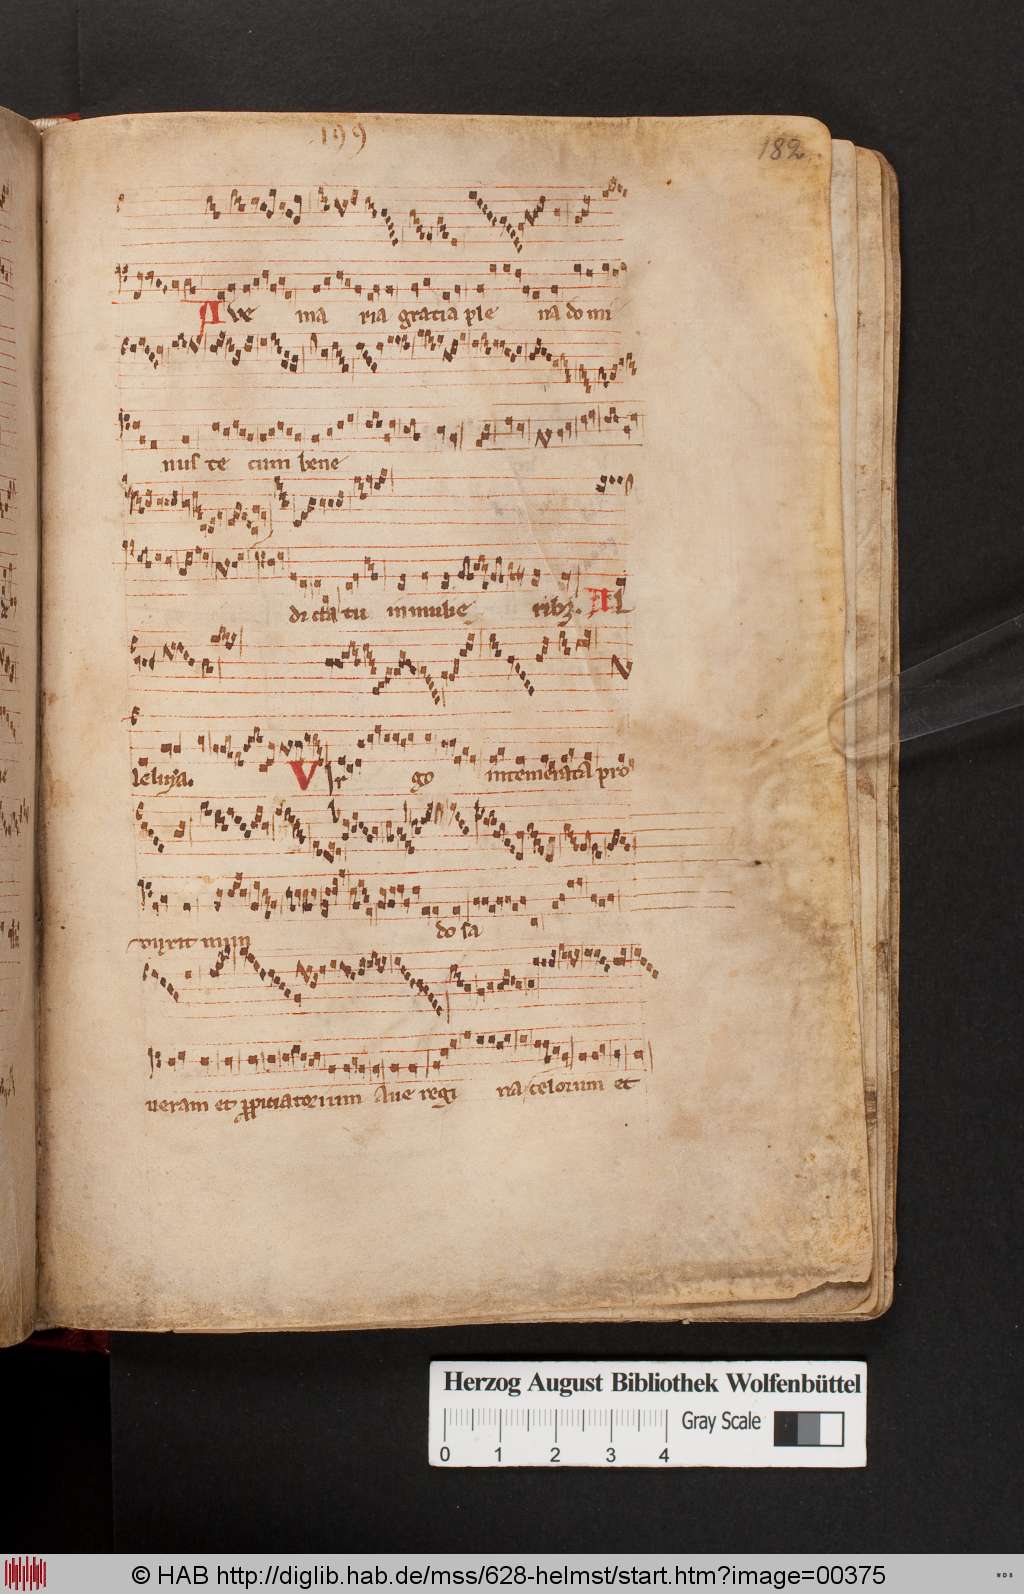 199
182
Ave ma ria gratia ple na do mi
nus te cum bene
dicta tu in mulie ribꝫ. Al
leluya. Vir go intemerata pro
do sa
veram et ꝓpiciatorium Aue regi na celorum et
Herzog August Bibliothek Wolfenbüttel
Gray Scale
0 1 2 3 4
© HAB http://diglib.hab.de/mss/628-helmst/start.htm?image=00375